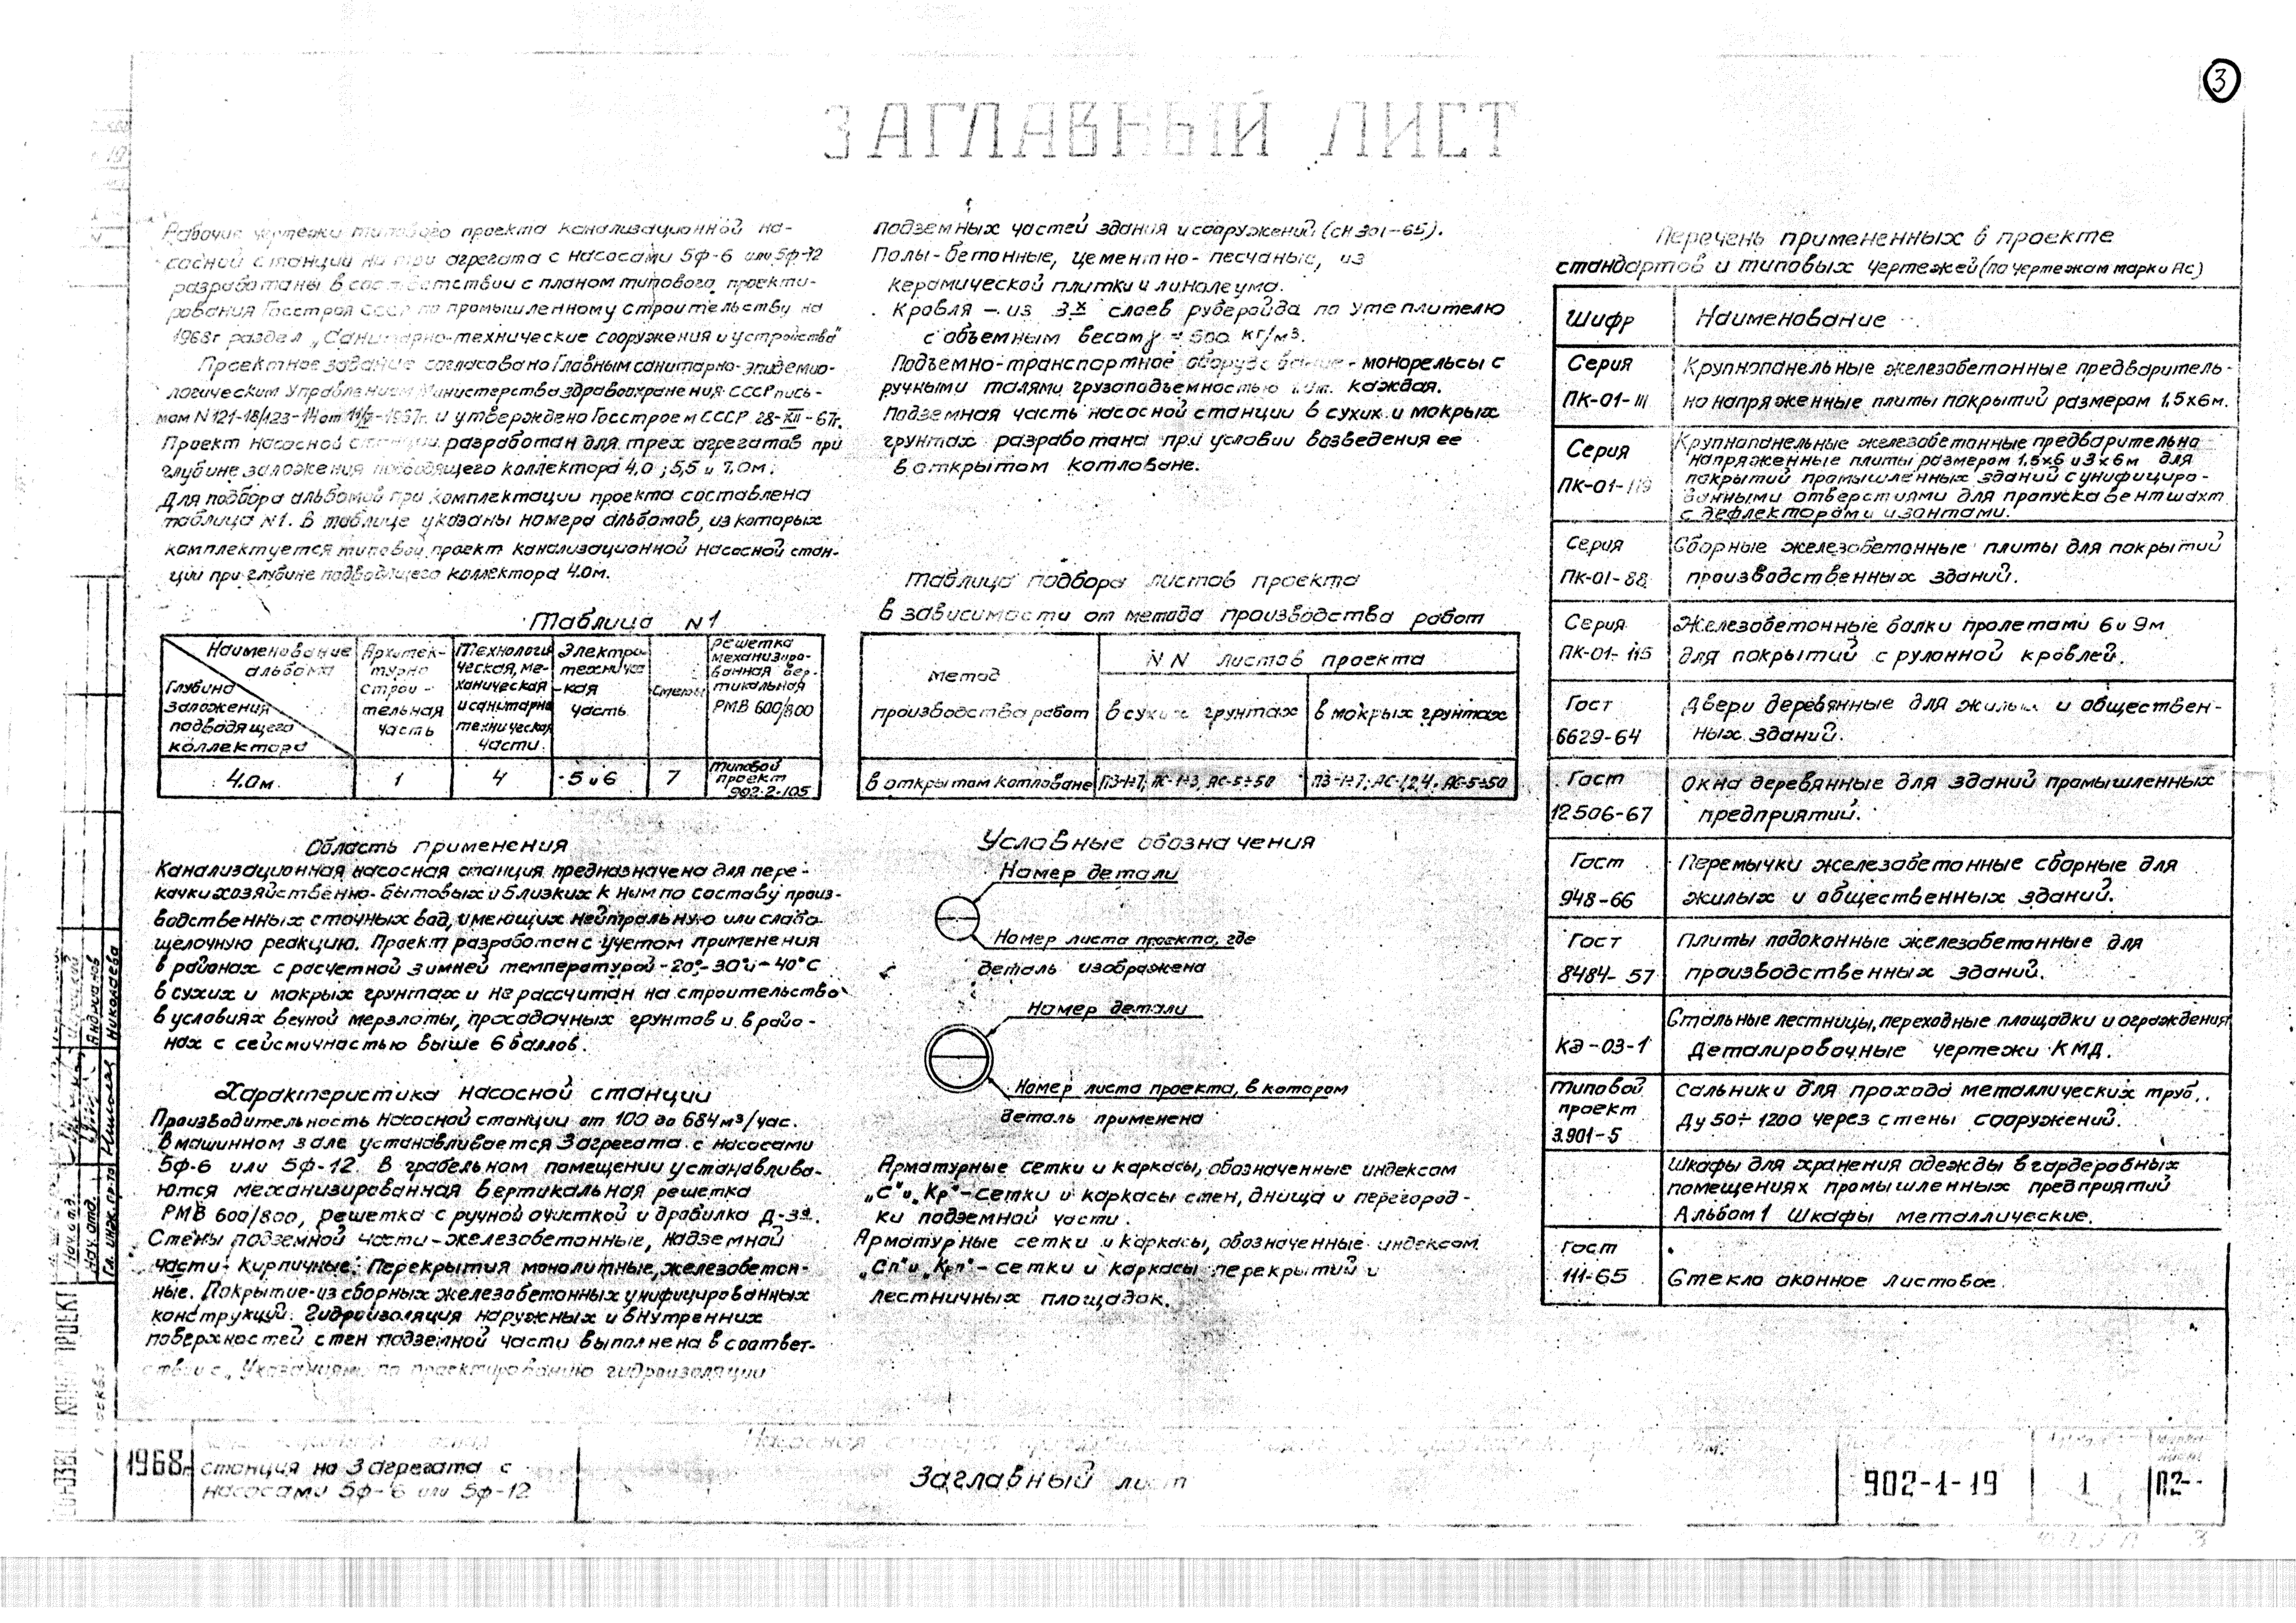 3
ЗАГЛАВНЫЙ ЛИСТ
Рабочие чертежи типового проекта канализационной на-
сосной станции на три агрегата с насосами 5ф-6 или 5ф-12
разработаны в соответствии с планом типового проекти-
рования Госстроя СССР по промышленному строительству на
1968г раздел „Санитарно-технические сооружения и устройства"
Проектное задание согласовано Главным санитарно-эпидемио-
логическим Управлением Министерства здравоохранения СССР пись-
мом N 121-18/123-14 от 1967г. и утверждено Госстроем СССР 28-XII-67г.
Проект насосной станции разработан для трех агрегатов при
глубине заложения подводящего коллектора 4,0; 5,5 и 7,0м.
Для подбора альбомов при комплектации проекта составлена
таблица N1. В таблице указаны номера альбомов, из которых
комплектуется типовой проект канализационной насосной стан-
ции при глубине подводящего коллектора 4.0м.
Таблица N1
Наименование альбома
Глубина заложения подводящего коллектора
Архитек-турно строи-тельная часть
Технологическая, ме-ханическая и санитарно техническая части
Электротехничес-кая часть
Сметы
Решетка механизиро-ванная вер-тикальная РМВ 600/800
4.0м 1 4 5 и 6 7 Типовой проект 902-2-105
Область применения
Канализационная насосная станция предназначена для пере-
качки хозяйственно-бытовых и близких к ним по составу произ-
водственных сточных вод, имеющих нейтральную или слабо-
щелочную реакцию. Проект разработан с учетом применения
в районах с расчетной зимней температурой -20°-30°и-40°С
в сухих и мокрых грунтах и не рассчитан на строительство
в условиях вечной мерзлоты, просадочных грунтов и в райо-
нах с сейсмичностью выше 6 баллов.
Характеристика насосной станции
Производительность насосной станции от 100 до 684 м³/час.
В машинном зале устанавливается 3 агрегата с насосами
5ф-6 или 5ф-12. В грабельном помещении устанавлива-
ются механизированная вертикальная решетка
РМВ 600/800, решетка с ручной очисткой и дробилка Д-3а.
Стены подземной части-железобетонные, надземной
части-кирпичные. Перекрытия монолитные, железобетон-
ные. Покрытие-из сборных железобетонных унифицированных
конструкций. Гидроизоляция наружных и внутренних
поверхностей стен подземной части выполнена в соответ-
ствии с „Указаниями по проектированию гидроизоляции
подземных частей здания и сооружений (СН 301-65).
Полы-бетонные, цементно-песчаные, из
керамической плитки и линолеума.
Кровля - из 3х слоев рубероида по утеплителю
с объемным весом γ = 500 кг/м³.
Подъемно-транспортное оборудование - монорельсы с
ручными талями грузоподъемностью каждая.
Подземная часть насосной станции в сухих и мокрых
грунтах разработана при условии возведения ее
в открытом котловане.
Таблица подбора листов проекта
в зависимости от метода производства работ
Метод производства работ
NN листов проекта
в сухих грунтах
в мокрых грунтах
в открытом котловане ПЗ-1÷7; АС-1÷3, АС-5÷50 ПЗ-1÷7; АС-1,2,4, АС-5÷50
Условные обозначения
Номер детали
Номер листа проекта, где
деталь изображена
Номер детали
Номер листа проекта, в котором
деталь применена
Арматурные сетки и каркасы, обозначенные индексом
„С"и„Кр"-сетки и каркасы стен, днища и перегород-
ки подземной части.
Арматурные сетки и каркасы, обозначенные индексом
„Сп"и„Крп"-сетки и каркасы перекрытий и
лестничных площадок.
Перечень примененных в проекте
стандартов и типовых чертежей (по чертежам марки АС)
Шифр Наименование
Серия Крупнопанельные железобетонные предваритель-
ПК-01-111 но напряженные плиты покрытий размером 1,5х6м.
Серия Крупнопанельные железобетонные предварительно
напряженные плиты размером 1,5х6 и 3х6м для
ПК-01-119 покрытий промышленных зданий с унифициро-
ванными отверстиями для пропуска вентшахт
с дефлекторами и зонтами.
Серия Сборные железобетонные плиты для покрытий
ПК-01-88 производственных зданий.
Серия Железобетонные балки пролетами 6 и 9м
ПК-01-115 для покрытий с рулонной кровлей.
Гост Двери деревянные для жилых и обществен-
6629-64 ных зданий.
Гост Окна деревянные для зданий промышленных
12506-67 предприятий.
Гост Перемычки железобетонные сборные для
948-66 жилых и общественных зданий.
Гост Плиты подоконные железобетонные для
8484-57 производственных зданий.
Стальные лестницы, переходные площадки и ограждения
КЭ-03-1 Деталировочные чертежи КМД.
Типовой Сальники для прохода металлических труб
проект Ду 50÷1200 через стены сооружений.
3.901-5
Шкафы для хранения одежды в гардеробных
помещениях промышленных предприятий
Альбом 1 Шкафы металлические.
Гост
111-65 Стекло оконное листовое.
Нач.отд.
Гл. инж. пр-та
Николаева
1968г
станция на 3 агрегата с
насосами 5ф-6 или 5ф-12
Насосная станция
Заглавный лист
902-1-19
1
ПЗ-
3